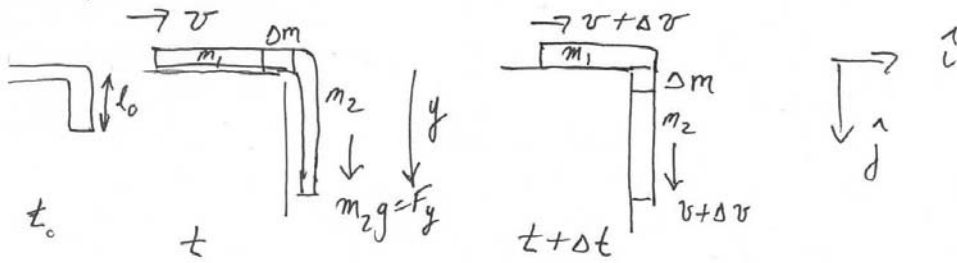 → v
Δm
m₁
l₀
m₂
y
m₂g = F_y
t₀
t
→ v + Δv
m₁
Δm
m₂
v + Δv
t + Δt
î
ĵ